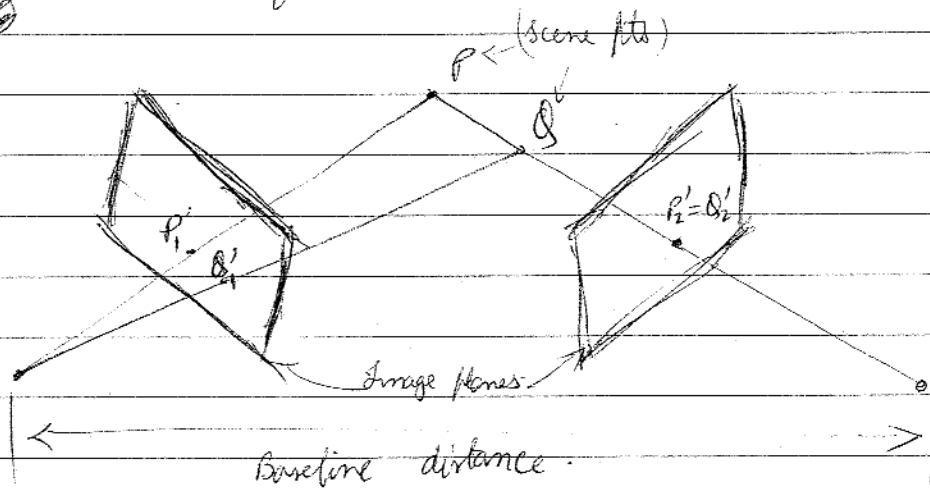 (scene pts)
P
Q
P₂'=Q₂'
P₁'
Q₁'
Image planes
Baseline distance.